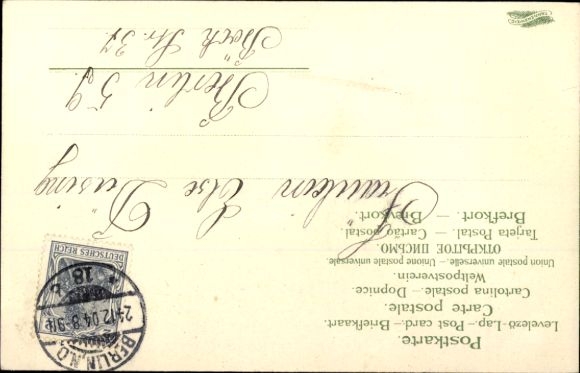 Postkarte.
Levelező-Lap – Post card. – Briefkaart.
Carte postale.
Cartolina postale – Dopnice.
Weltpostverein.
Union postale universelle. – Unione postale universale
ОТКРЫТОЕ ПИСЬМО
Tarjeta Postal. – Cartão postal.
Brefkort. – Brevkort.
DEUTSCHES REICH
BERLIN N.O.
24.12.04.8-9N.
18 c
Fräulein Else Düsing
Berlin 59
Böck Str. 37